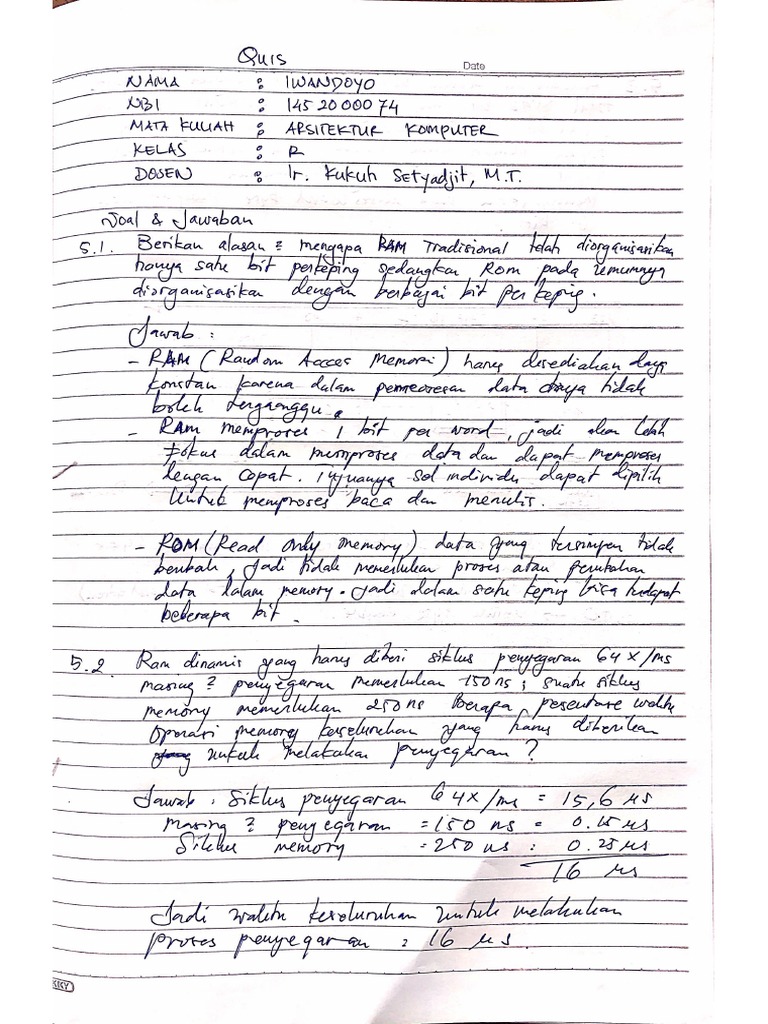 Quis
Date
NAMA : IWANDOYO
NBI : 145 20 000 74
MATA KULIAH : ARSITEKTUR KOMPUTER
KELAS : R
DOSEN : Ir. Kukuh Setyadjit, M.T.
Soal & Jawaban
5.1. Berikan alasan2 mengapa RAM Tradisional telah diorganisasikan
hanya satu bit perkeping sedangkan Rom pada umumnya
diorganisasikan dengan berbagai bit per keping.
Jawab :
- RAM (Random Acces Memori) harus disediakan daya
konstan karena dalam pemrosesan data tidak
boleh terganggu.
- RAM memproses 1 bit per word, jadi akan lebih
Fokus dalam memproses data dan dapat memproses
dengan cepat. Tujuanya sel individu dapat dipilih
Untuk memproses baca dan menulis.
- ROM (Read only memory) data yang tersimpan tidak
berubah, jadi tidak memerlukan proses atau perubahan
data dalam memory. Jadi dalam satu keping bisa terdapat
beberapa bit.
5.2. Ram dinamis yang harus diberi siklus penyegaran 64x/ms
masing2 penyegaran memerlukan 150 ns; suatu siklus
memory memerlukan 250 ns Berapa persentase waktu
operasi memory keseluruhan yang harus diberikan
untuk melakukan penyegaran?
Jawab : Siklus penyegaran 64x/ms = 15,6 µs
Masing2 penyegaran = 150 ns = 0.15 µs
Siklus memory = 250 ns = 0.25 µs
16 µs
Jadi waktu keseluruhan untuk melakukan
proses penyegaran = 16 µs.
KKY